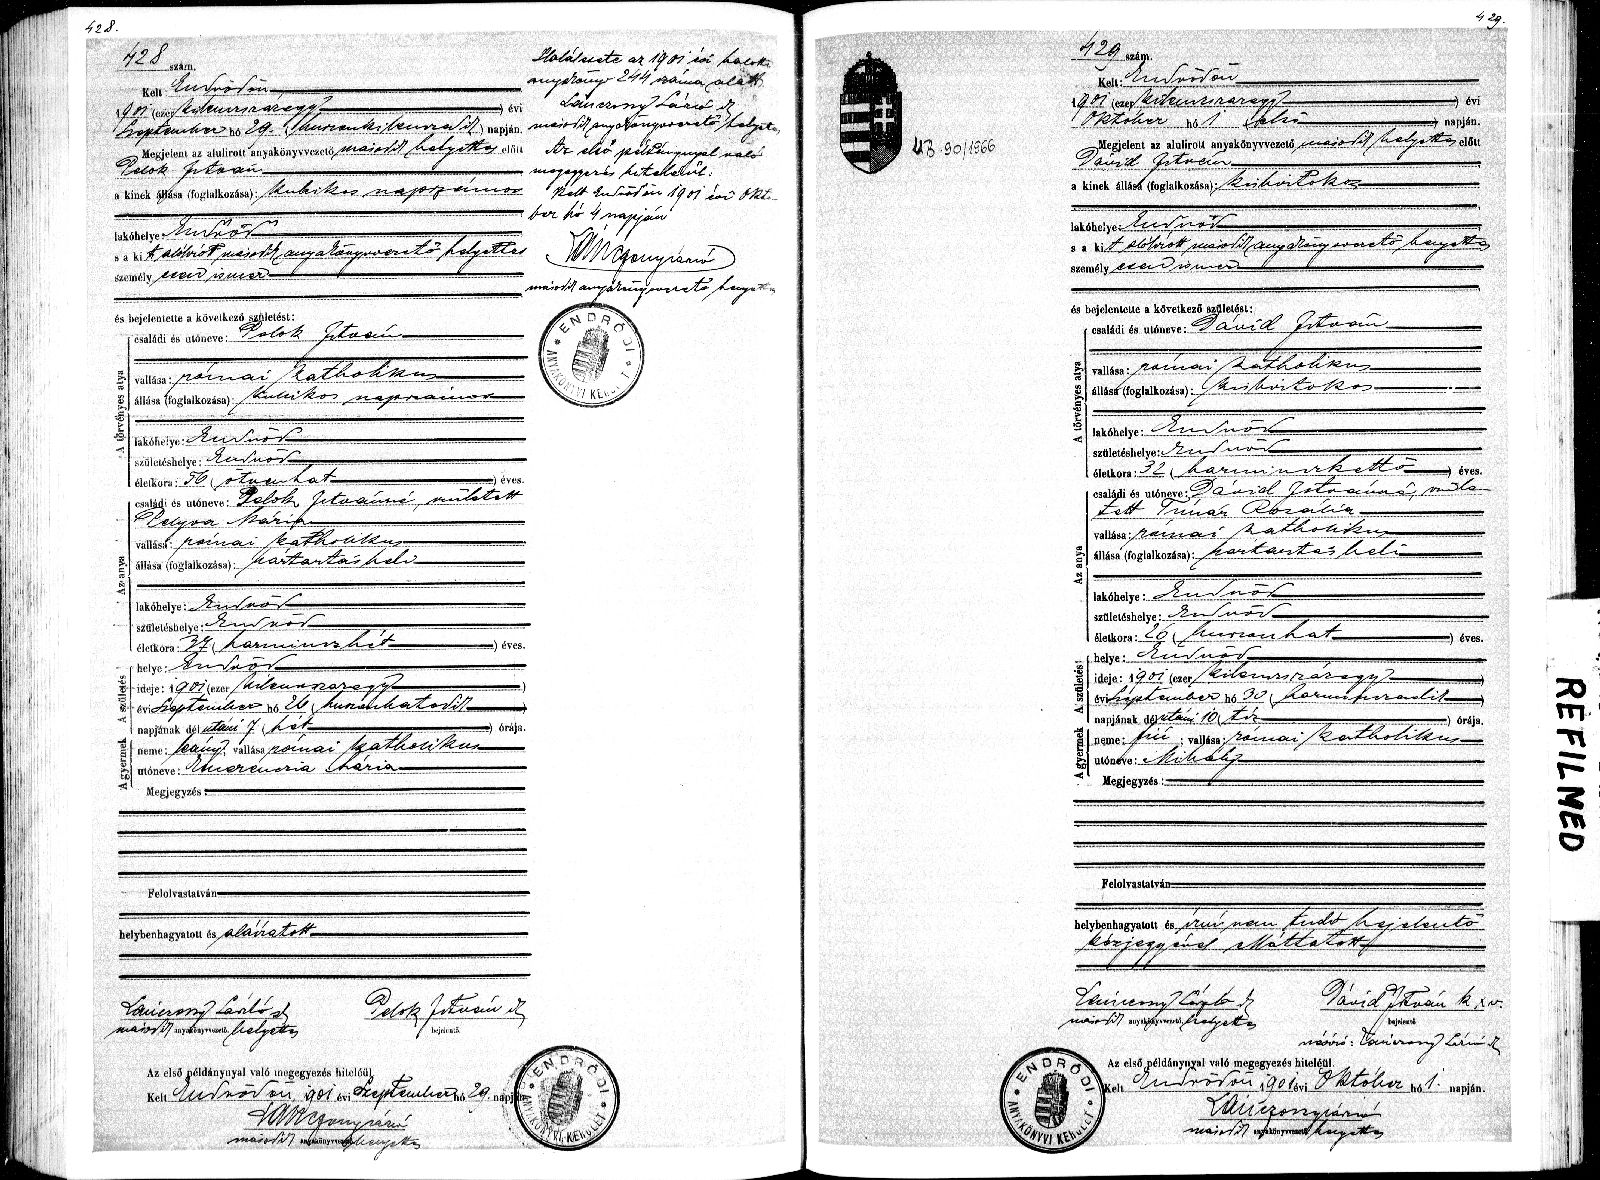 428.
428 szám.
Kelt Endrődön
1901 (ezer kilencszázegy) évi
Szeptember hó 29. (huszonkilencedik) napján.
Megjelent az alulirott anyakönyvvezető második helyettes előtt
Polok István
a kinek állása (foglalkozása): kubikos napszámos
lakóhelye: Endrőd
s a kit alólirott másodk anyakönyvvezető helyettes
személyesen ismer
és bejelentette a következő születést:
A törvényes atya
családi és utóneve: Polok István
vallása: római katholikus
állása (foglalkozása): kubikos napszámos
lakóhelye: Endrőd
születéshelye: Endrőd
életkora: 56 (ötvenhat) éves.
Az anya
családi és utóneve: Polok Istvánné, született
Mária
vallása: római katholikus
állása (foglalkozása): háztartásbeli
lakóhelye: Endrőd
születéshelye: Endrőd
életkora: 37 (harminczhét) éves.
A születés
helye: Endrőd
ideje: 1901 (ezer kilenczszázegy)
évi Szeptember hó 26 (huszonhatodik)
napjának dél utáni 7 (hét) órája.
A gyermek
neme: leány; vallása római katholikus
utóneve: Emerenczia Mária
Megjegyzés:
Felolvastatván
helybenhagyatott és aláiratott
Lánczony László sk
másodk anyakönyvvezető helyettes
Polok István sk
bejelentő.
Az első példánynyal való megegyezés hiteléül
Kelt Endrődön, 1901 évi Szeptember hó 29. napján
másodk anyakönyvvezető helyettes
Halálesete az 1901 évi halotti
anyakönyv 244 száma alatt
Lánczony László sk
másodk anyakönyvvezető helyettes
Az első példánynyal való
megegyezés hiteléül.
Kelt Endrődön 1901 évi Októ-
ber hó 4 napján
másodk anyakönyvvezető helyettes
ENDRŐDI
ANYAKÖNYVI KERÜLET
ENDRŐDI
ANYAKÖNYVI KERÜLET
429.
429 szám.
Kelt: Endrődön
1901 (ezer kilenczszázegy) évi
Október hó 1 (első) napján.
Megjelent az alulirott anyakönyvvezető másodk helyettes előtt
Dávid István
a kinek állása (foglalkozása): kisbirtokos
lakóhelye: Endrőd
s a kit alólirott másodk anyakönyvvezető helyettes
személyesen ismer
és bejelentette a következő születést:
A törvényes atya
családi és utóneve: Dávid István
vallása: római katholikus
állása (foglalkozása): kisbirtokos
lakóhelye: Endrőd
születéshelye: Endrőd
életkora: 32 (harminczkettő) éves.
Az anya
családi és utóneve: Dávid Istvánné, szüle-
tett Timár Rozália
vallása: római katholikus
állása (foglalkozása): háztartásbeli
lakóhelye: Endrőd
születéshelye: Endrőd
életkora: 26 (huszonhat) éves.
A születés
helye: Endrőd
ideje: 1901 (ezer kilenczszázegy)
évi Szeptember hó 30 (harminczadik)
napjának dél utáni 10 (tíz) órája.
A gyermek
neme: fiú; vallása: római katholikus
utóneve: Mihály
Megjegyzés:
Felolvastatván
helybenhagyatott és írni nem tudó bejelentő
kézjegyével elláttatott
Lánczony László sk
másodk anyakönyvvezető helyettes
Dávid István k x v.
bejelentő
névíró: Lánczony László sk
Az első példánynyal való megegyezés hiteléül
Kelt Endrődön 1901 évi Október hó 1. napján.
másodk anyakönyvvezető helyettes
ENDRŐDI
ANYAKÖNYVI KERÜLET
43-90/1966
REFILMED